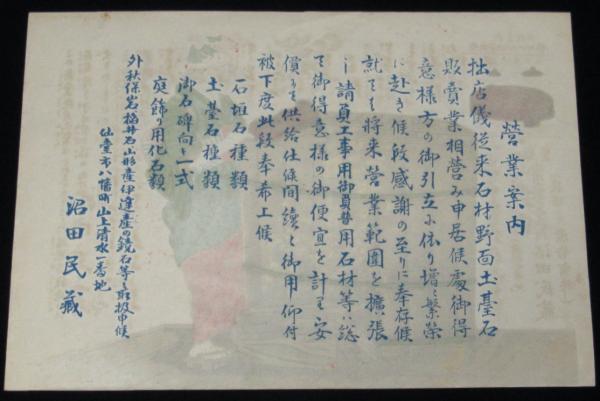 營業案内
拙店儀従来石材野面土臺石
販賣業相営み申居候處御得
意様方の御引立に依り増々繁榮
に赴き候段感謝の至りに奉存候
就ては将来営業範圍を擴張
し請負工事用御員替用石材等は総
て御得意様の御便宜を計り安
價にて供給仕候間續々御用仰付
被下度此段奉希上候
石垣石種類
土臺石種類
御石碑向き一式
庭飾り用化石類
外秋保岩稲井石山形産伊達産の鏡石等も取扱申候
仙臺市八幡町山上清水一番地
沼田民藏